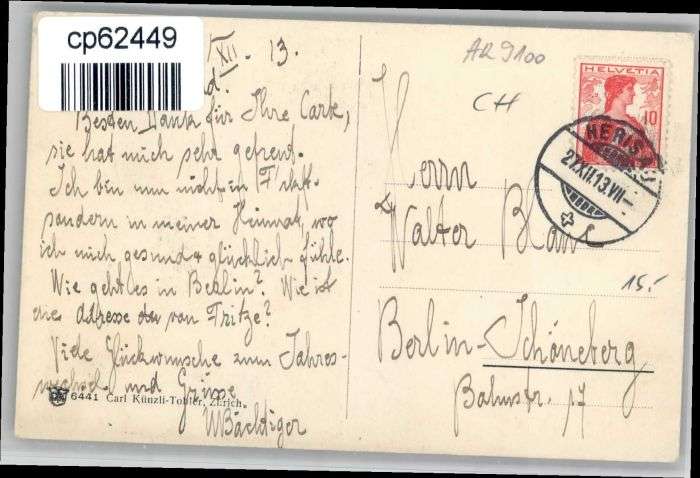 cp62449
XII. 13.
Besten Dank für Ihre Carte,
sie hat mich sehr gefreut.
Ich bin nun nicht in
sondern in meiner Heimat, wo
ich mich gesund & glücklich fühle.
Wie geht es in Berlin? Wie ist
die Adresse von Fritze?
Viele Glückwünsche zum Jahres-
wechsel und Grüsse
WBächtiger
6441 Carl Künzli-Tobler, Zürich.
AR 9100
CH
HELVETIA
10
HERISAU
27.XII.13.VII-
Herrn
Walter
15.-
Berlin-Schöneberg
Bahnstr. 17